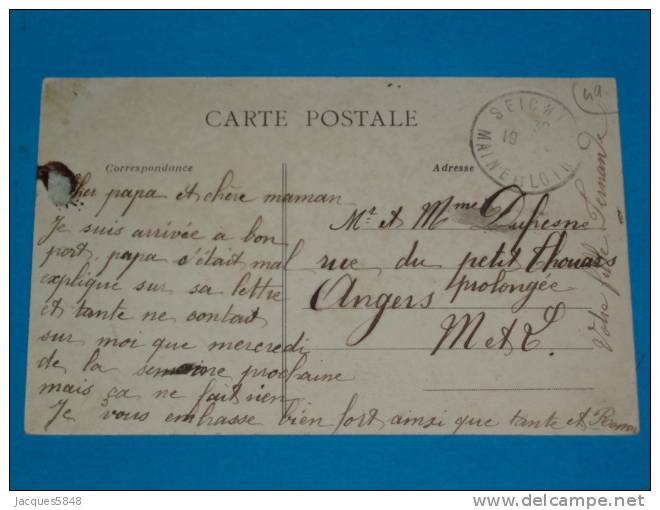 CARTE POSTALE
Correspondance
Adresse
SEICHE
19
MAINE ET LOIRE
59
Cher papa et chère maman
Je suis arrivée a bon
port, papa s'était mal
expliqué sur sa lettre
et tante ne contait
sur moi que mercredi
de la semaine prochaine
mais ça ne fait rien
Je vous embrasse bien fort ainsi que tante et
Mr et Mme Dufresne
rue du petit Thouars
prolongée
Angers
M et L.
Votre fille Fernande
Jacques5848
delcampe.net